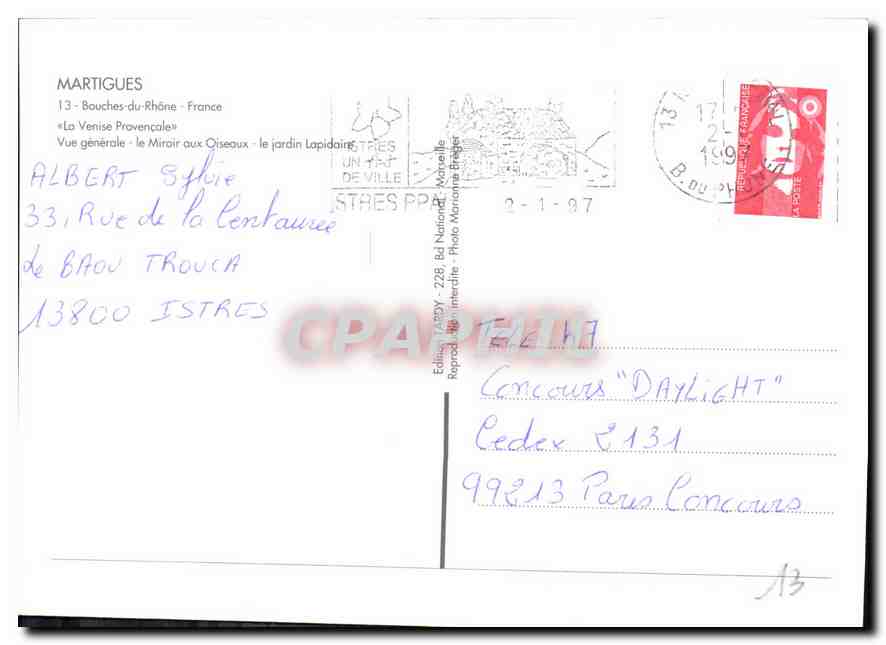 MARTIGUES
13 - Bouches-du-Rhône - France
«La Venise Provençale»
Vue générale - le Miroir aux Oiseaux - le jardin Lapidaire
ALBERT Sylvie
33, Rue de la Centaurée
Le BAOU TROUCA
13800 ISTRES
ISTRES
UN
DE VILLE
ISTRES PPAL
2-1-97
13
17
2-
199
B. DU RHONE
RÉPUBLIQUE FRANÇAISE
LA POSTE
Edition TARDY - 228, Bd National - Marseille
Reproduction interdite - Photo Marianne Breger
CPAPHIL
TELE 47
Concours "DAYLIGHT"
Cedex 2131
99213 Paris Concours
13